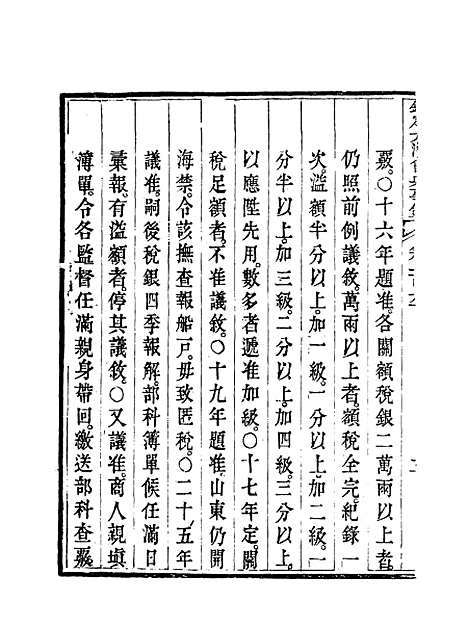 覈。○十六年題准。各關額稅銀二萬兩以上者。
仍照前例議敘。萬兩以上者。額稅全完。紀錄一
次。溢額半分以上。加一級。一分以上。加二級。一
分半以上。加三級。二分以上。加四級。三分以上。
以應陞先用。數多者遞准加級。○十七年定。關
稅足額者。不准議敘。○十九年題准。山東仍開
海禁。令該撫查報船戶。毋致匿稅。○二十五年
議准。嗣後稅銀四季報解。部科簿單候任滿日
彙報。有溢額者。停其議敘。○又議准。商人親塡
簿單。令各監督任滿親身帶回。繳送部科查覈。